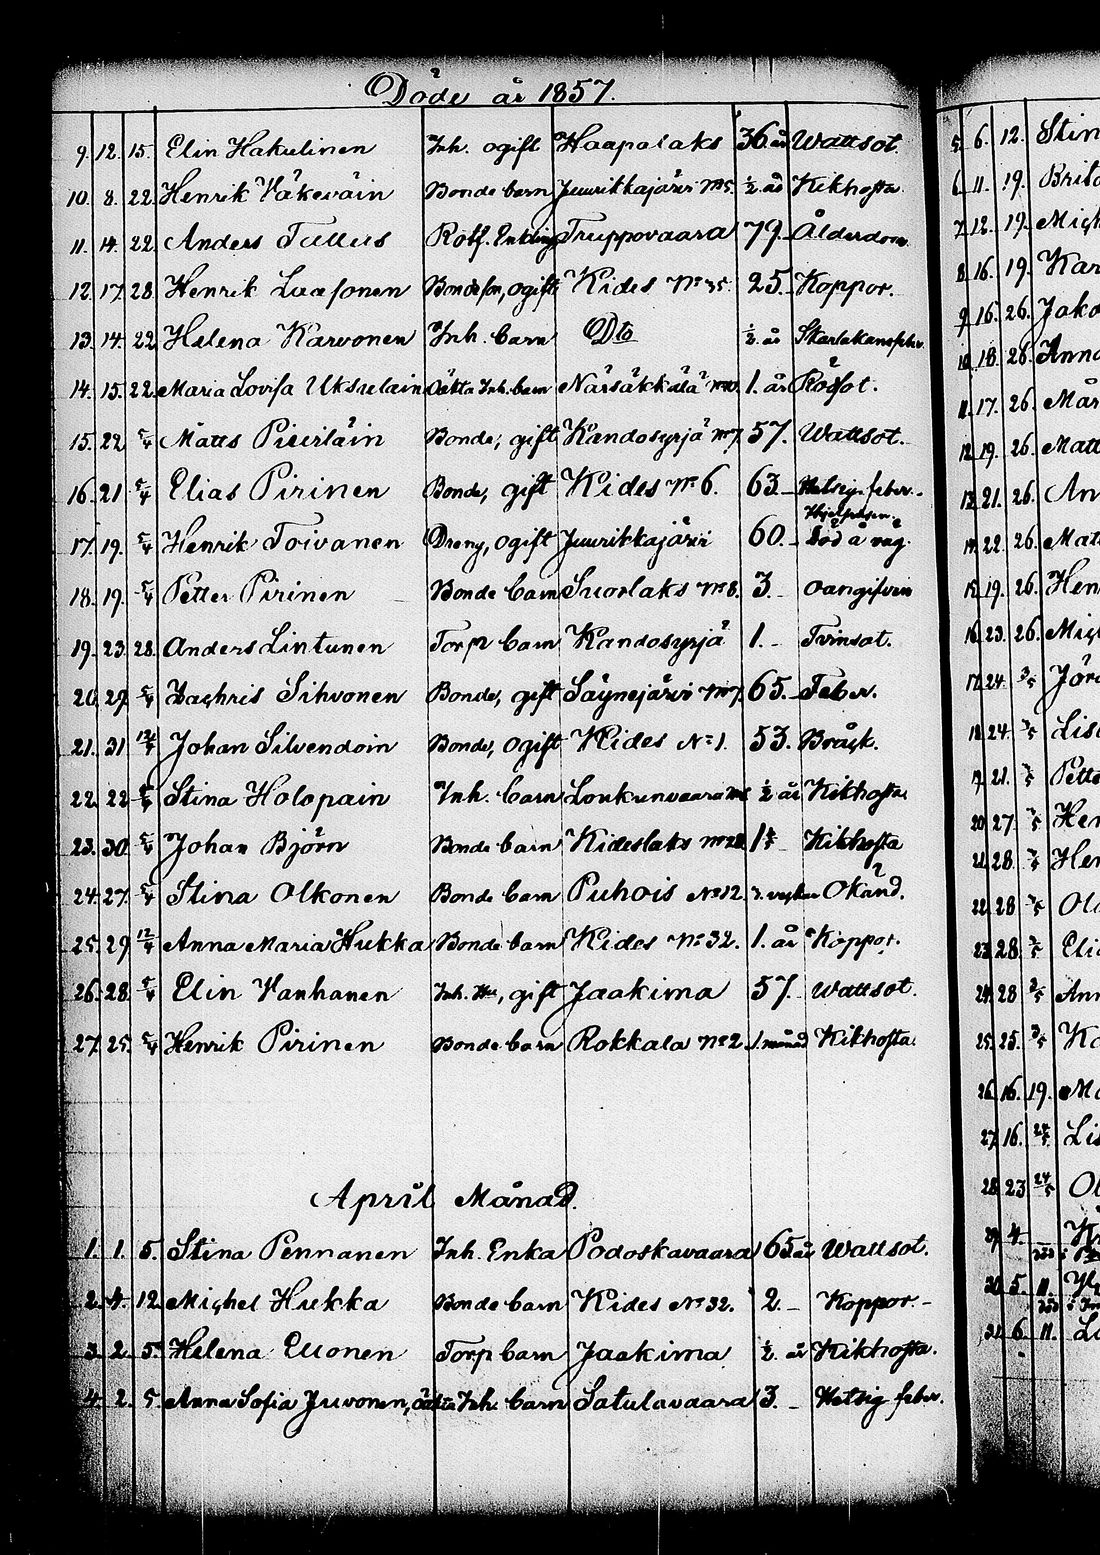 Döde år 1857.
9. 12. 15. Elin Hakulinen Inh. ogift Haapalaks 36. år Wattsot.
10. 8. 22. Henrik Väkeväin Bonde barn Juurikkajärvi No 5. ½ år Kikhosta
11. 14. 22. Anders Tullus Rotf. Enkling Truppovaara 79. Ålderdom.
12. 17. 28. Henrik Laasonen Bondeson, ogift Kides No 35. 25. Koppor.
13. 14. 22. Helena Karvonen Inh. barn Dto ½ år Skarlakansfeber.
14. 15. 22. Maria Lovisa Uksulain Oäkta Inh. barn Närsäkkälä 1. år Rödsot.
15. 22. 5/4 Matts Piierläin Bonde, gift Kandosyrjä No 7. 57. Wattsot.
16. 21. 5/4 Elias Pirinen Bonde, gift Kides No 6. 63. Hetsig feber.
17. 19. 5/4 Henrik Toivanen Dreng, ogift Juurikkajärvi 60. Död å väg.
18. 19. 5/4 Petter Pirinen Bonde barn Suorlaks No 8. 3. oangifven
19. 23. 28. Anders Lintunen Torp barn Kandosyrjä 1. Tvinsot.
20. 29. 5/4 Zachris Sihvonen Bonde, gift Säynejärvi No 7. 65. Feber.
21. 31. 12/4 Johan Silvendoin Bonde, ogift Kides No 1. 53. Bråck.
22. 22. 5/4 Stina Holopain Inh. barn Loukunvaara ½ år Kikhosta
23. 30. 5/4 Johan Björn Bonde barn Kideslaks No 28. Kikhosta
24. 27. 5/4 Stina Olkonen Bonde barn Puhois No 12. 3. veckor Okänd.
25. 29. 12/4 Anna Maria Hukka Bonde barn Kides No 32. 1. år Koppor.
26. 28. 5/4 Elin Vanhanen Inh. Hu, gift Jaakima 57. Wattsot.
27. 25. 5/4 Henrik Pirinen Bonde barn Rokkala No 2. 1. månad Kikhosta
April Månad.
1. 1. 5. Stina Pennanen Inh. Enka Podoskavaara 65. år Wattsot.
2. 4. 12. Mighel Hukka Bonde barn Kides No 32. 2. Koppor.
3. 2. 5. Helena Euonen Torp barn Jaakima ½ år Kikhosta.
4. 2. 5. Anna Sofia Juvonen, oäkta Inh. barn Satulavaara 3. Hetsig feber.
5. 6. 12. Stin
6. 11. 19. Brita
7. 12. 19. Migh
8. 16. 19. Kar
9. 16. 26. Jako
10. 18. 26. Anna
11. 17. 26. Mar
12. 19. 26. Matt
13. 21. 26. An
14. 22. 26. Mat
15. 19. 26. Hen
16. 23. 26. Migh
17. 24. 3/5 Jöra
18. 24. 3/5 Lisa
19. 21. 3/5 Pette
20. 27. 3/5 Hen
21. 28. 3/5 Hen
22. 28. 3/5 Ol
23. 28. 3/5 Eli
24. 28. 3/5 Ann
25. 25. 3/5 Ka
26. 16. 19. Ma
27. 16. 24/5 Lis
28. 23. 24/5 Ol
29. 4.
30. 5. 11.
31. 6. 11. La